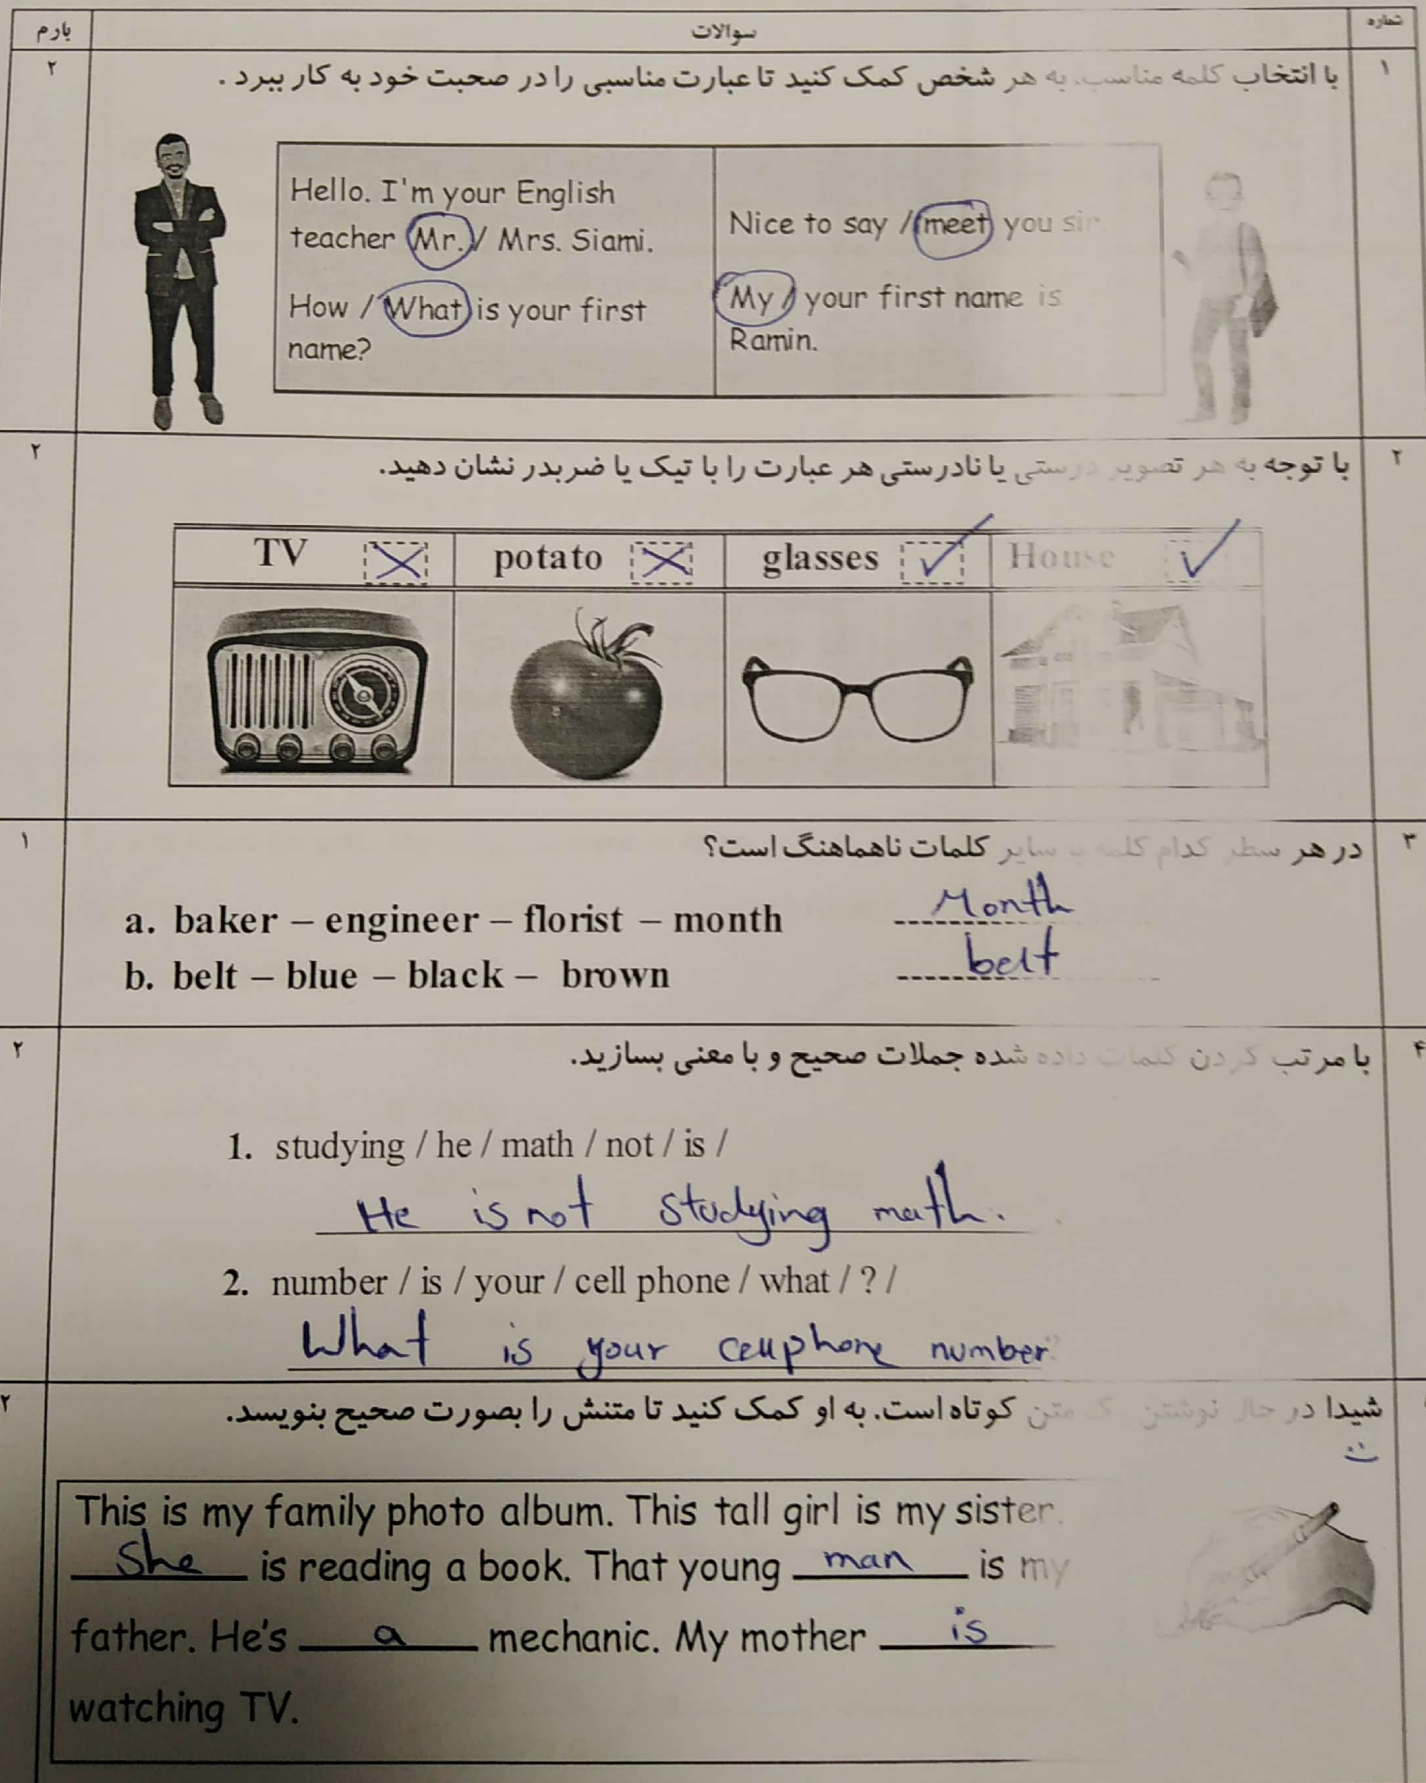 شماره سوالات بارم
۱ با انتخاب کلمه مناسب، به هر شخص کمک کنید تا عبارت مناسبی را در صحبت خود به کار ببرد . ۲
Hello. I'm your English
teacher Mr. / Mrs. Siami.
How / What is your first
name?
Nice to say / meet you sir
My / your first name is
Ramin.
۲ با توجه به هر تصویر درستی یا نادرستی هر عبارت را با تیک یا ضربدر نشان دهید. ۲
TV potato glasses House
۳ در هر سطر کدام کلمه با سایر کلمات ناهماهنگ است؟ ۱
a. baker – engineer – florist – month Month
b. belt – blue – black – brown belt
۴ با مرتب کردن کلمات داده شده جملات صحیح و با معنی بسازید. ۲
1. studying / he / math / not / is /
He is not studying math.
2. number / is / your / cell phone / what / ? /
What is your cellphone number?
شیدا در حال نوشتن یک متن کوتاه است. به او کمک کنید تا متنش را بصورت صحیح بنویسد. ۲
This is my family photo album. This tall girl is my sister.
She is reading a book. That young man is my
father. He's a mechanic. My mother is
watching TV.